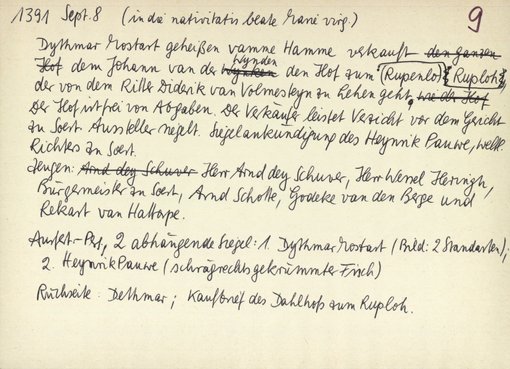 1391 Sept. 8 (in die nativitatis beate Marie virg.) 9
Dythmar Mostart geheißen vamme Hamme verkauft den ganzen
Hof dem Johann van der Wynken Wynden den Hof zum (Rupenlo) (Ruploh),
der von dem Ritter Diderik van Volmesteyn zu Lehen geht, wie der Hof
Der Hof ist frei von Abgaben. Der Verkäufer leistet Verzicht vor dem Gericht
zu Soest. Aussteller siegelt. Siegelankündigung des Heynrik Pauwe, weltl.
Richters zu Soest.
Zeugen: Arnd dey Schuver Herr Arnd dey Schuver, Herr Wessel Heringh,
Bürgermeister zu Soest, Arnd Schotte, Godeke van den Berge und
Rekart van Hattorpe.
Ausf.-Perg., 2 abhängende Siegel: 1. Dythmar Mostart (Bild: 2 Standarten);
2. Heynrik Pauwe (schrägrechts gekrümmter Fisch)
Rückseite: Dethmar; Kaufbrief des Dahlhofs zum Ruploh.